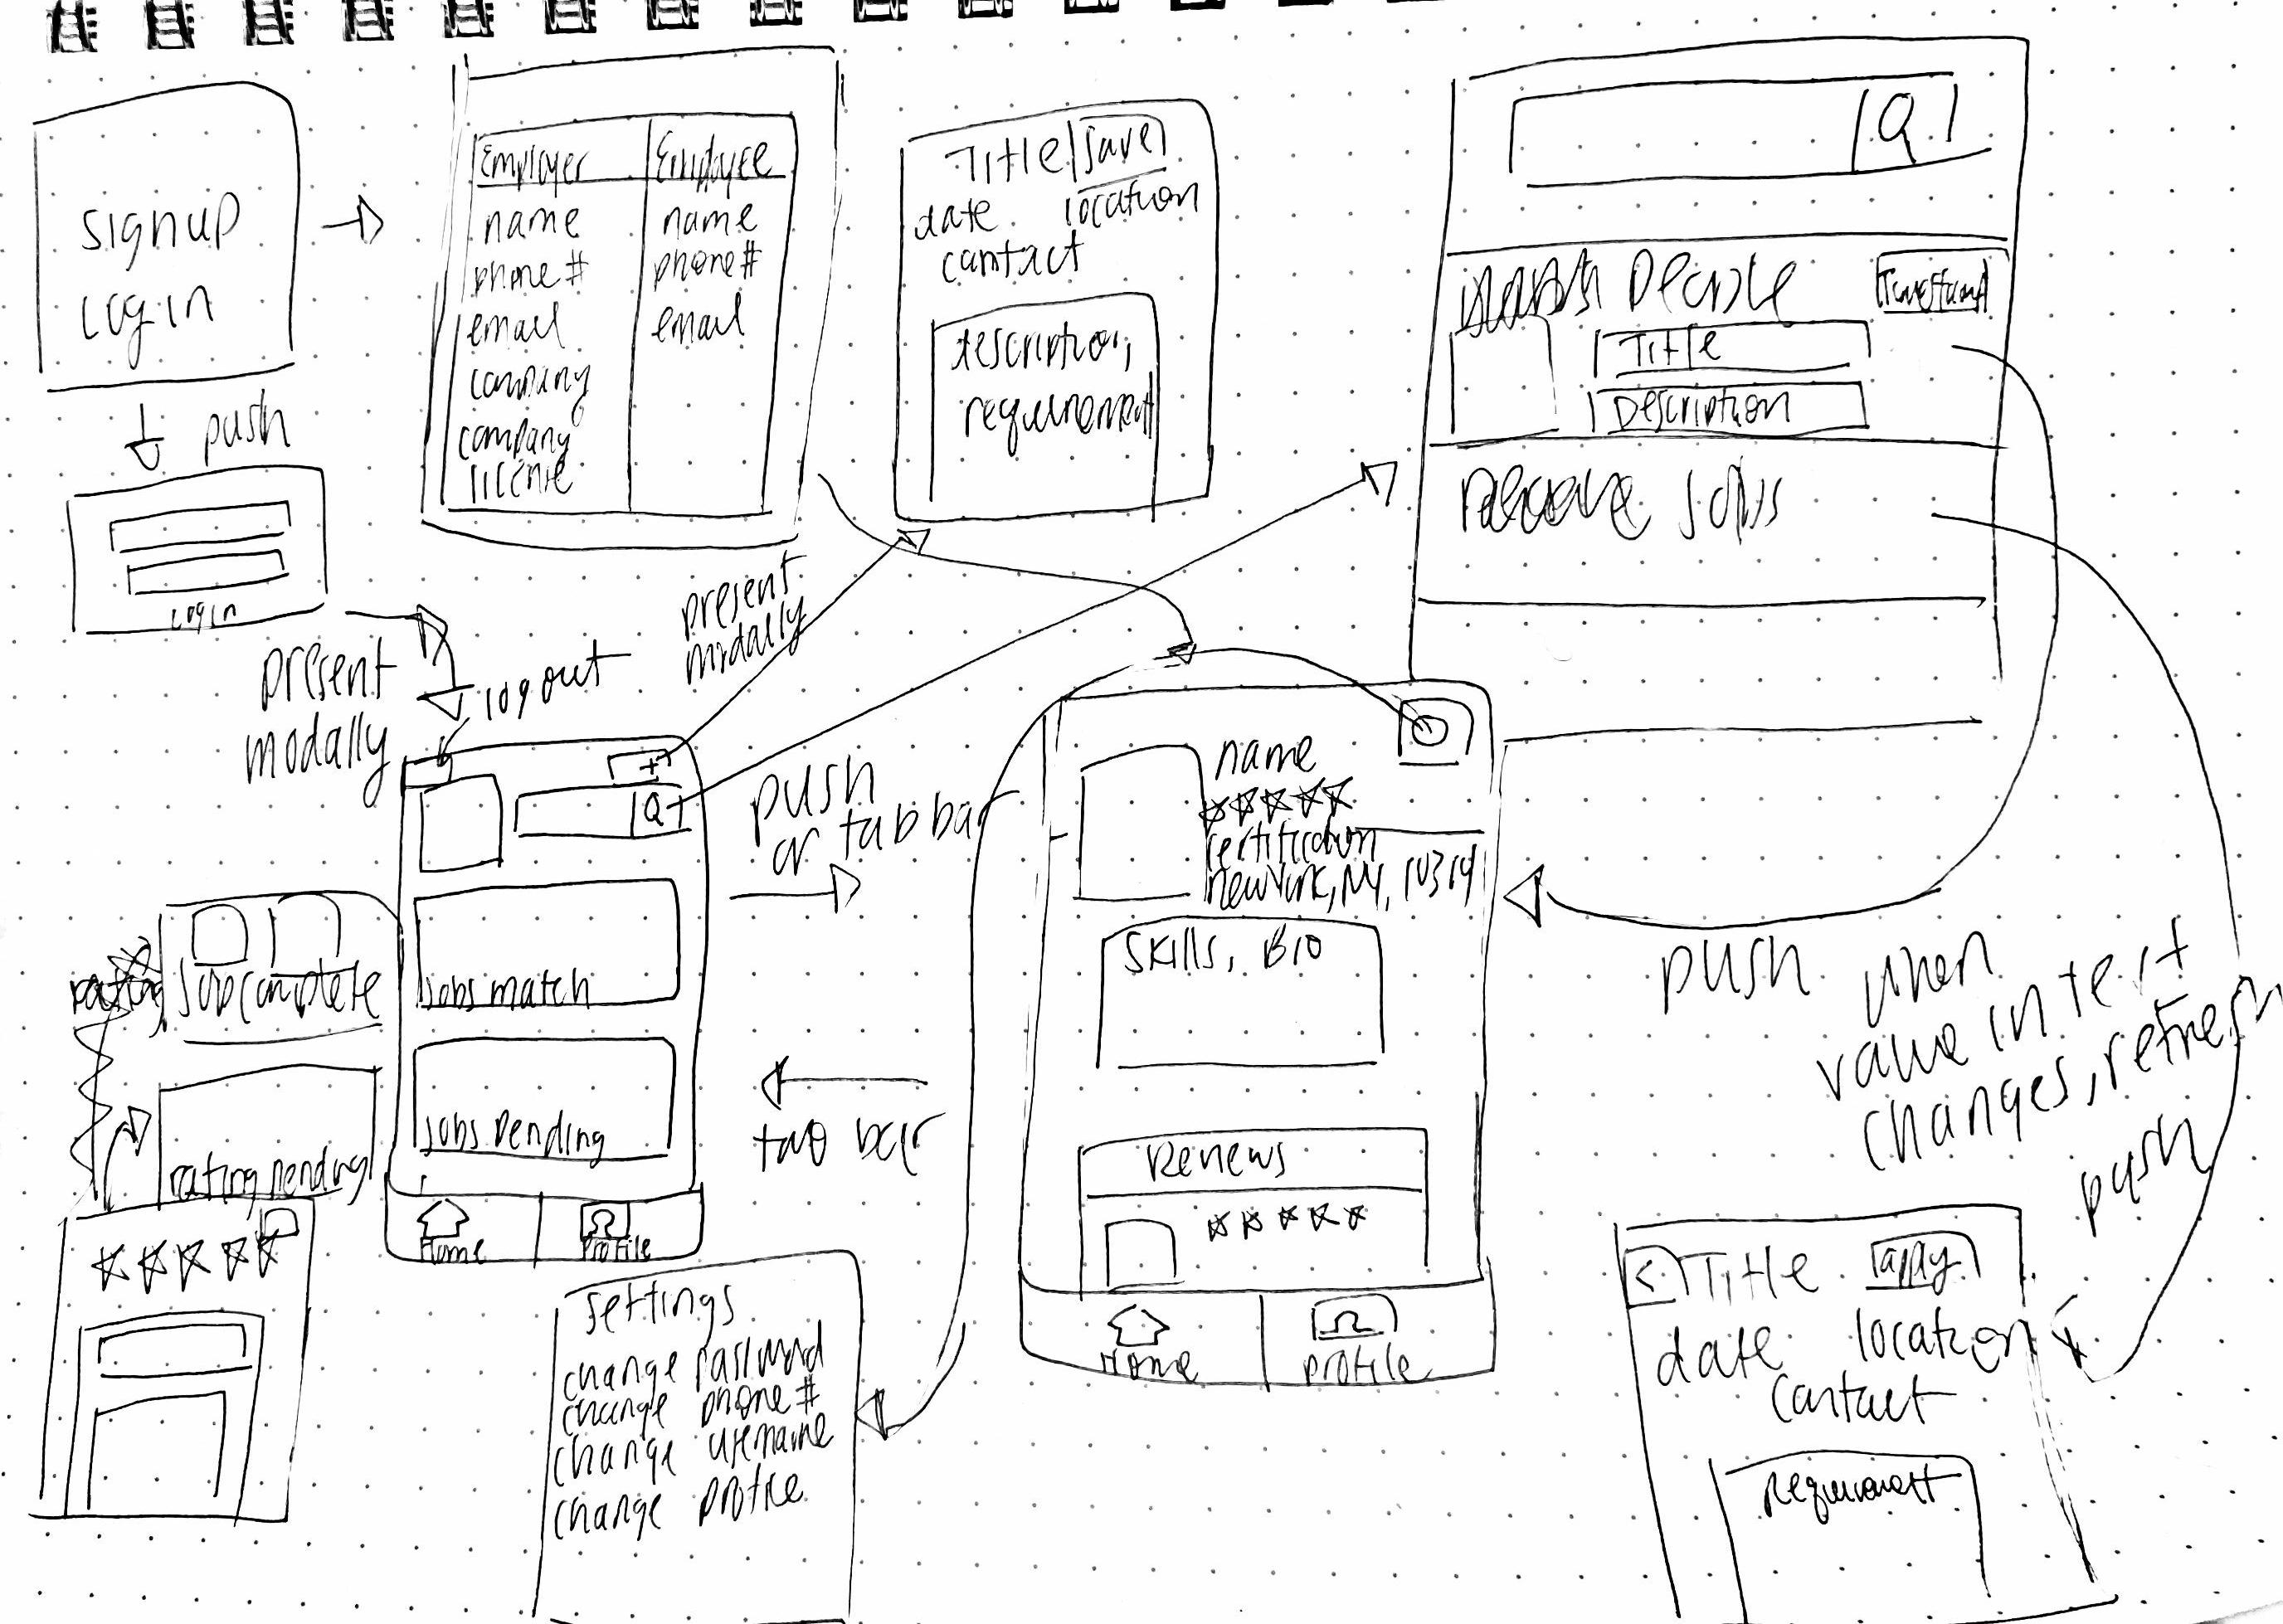 signup
login
push
login
present
modally
Employer Employee
name name
phone# phone#
email email
company
company
license
Title save
date location
contact
description,
requirement
Q
people
Title
Description
jobs
logout
present
modally
+
Q
jobs match
jobs pending
Home Profile
push
or tab bar
tab bar
job complete
rating pending
name
certification
New York, NY, 10314
skills, Bio
Reviews
Home Profile
settings
change password
change phone#
change username
change profile
push
when
value in text
changes, refresh
push
< Title apply
date location
contact
Requirement